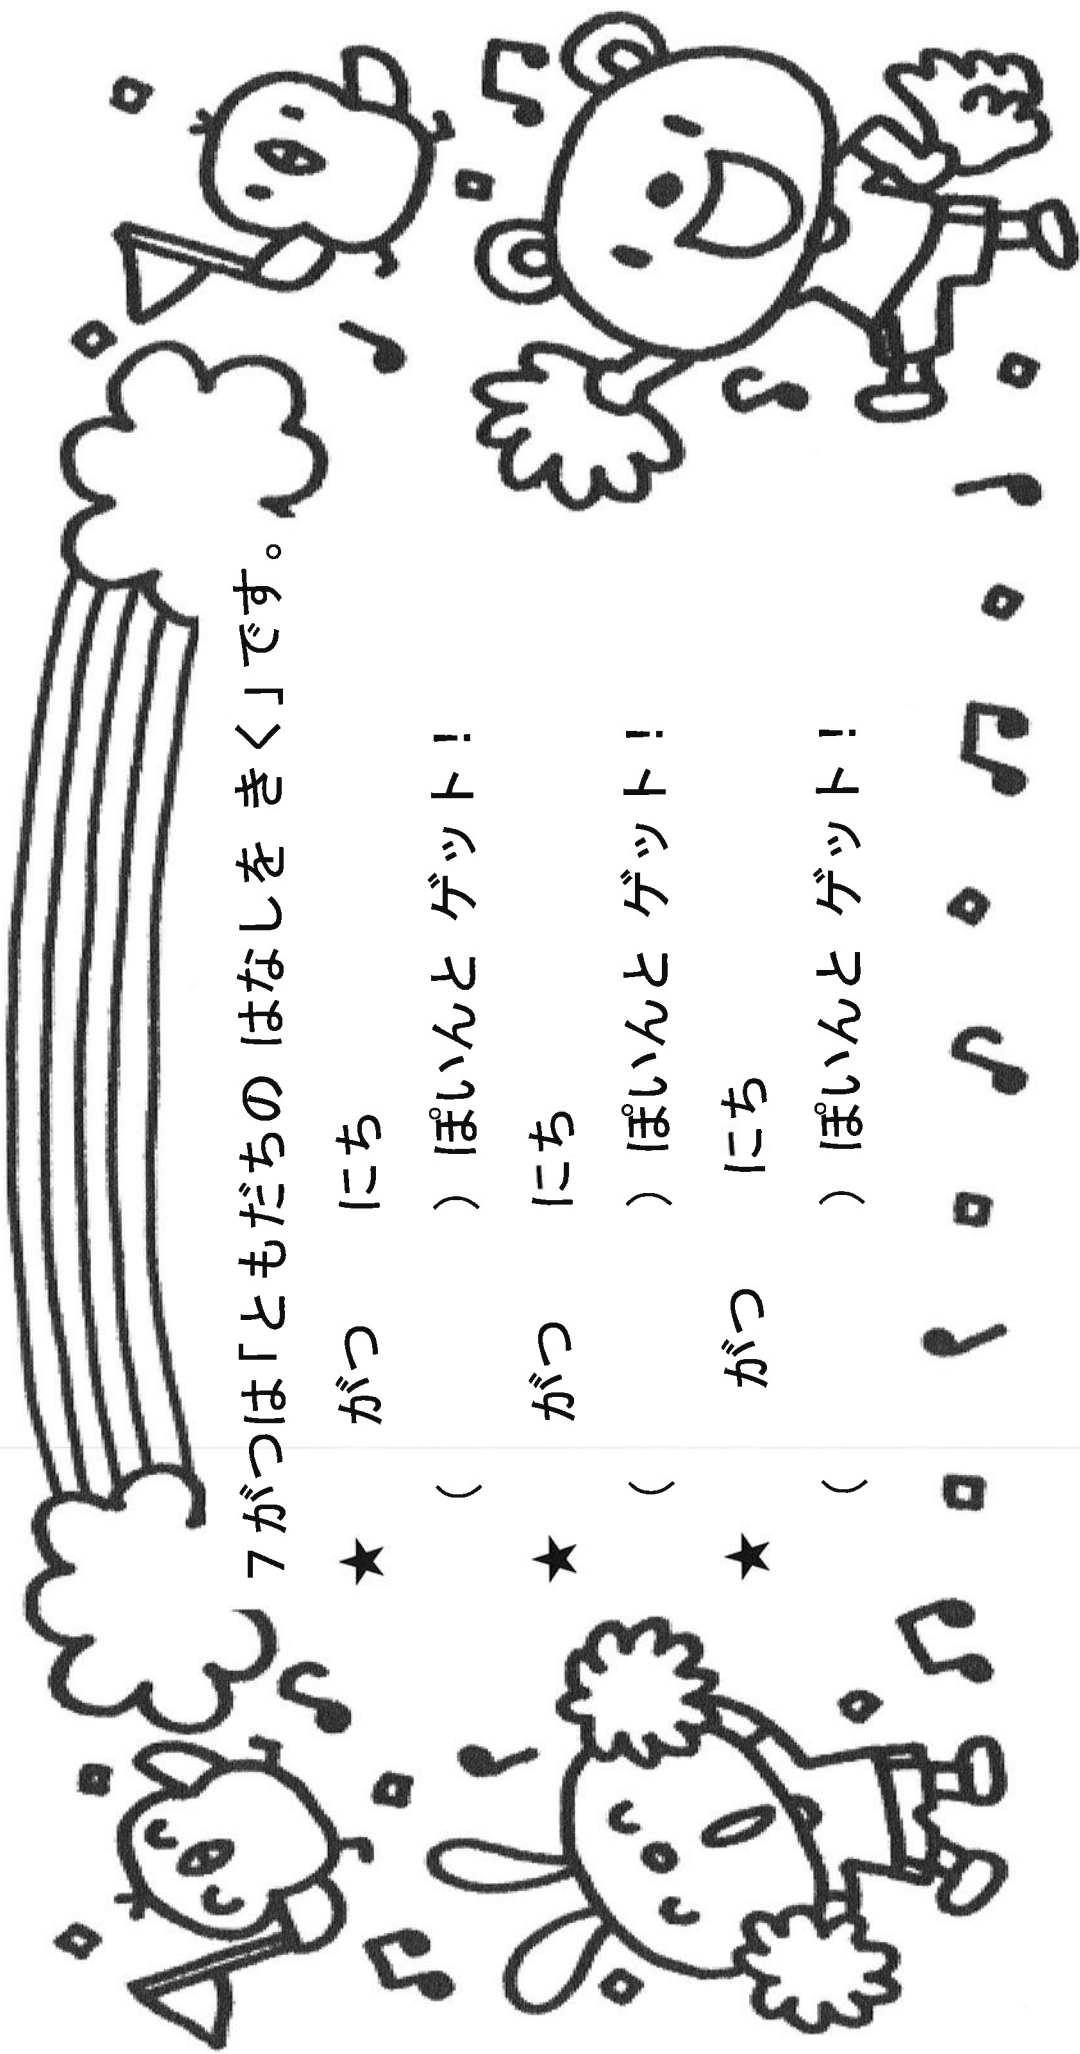 7がつは「ともだちの はなしを きく」です。
★　がつ　にち
（　　）ぽいんと ゲット！
★　がつ　にち
（　　）ぽいんと ゲット！
★　がつ　にち
（　　）ぽいんと ゲット！